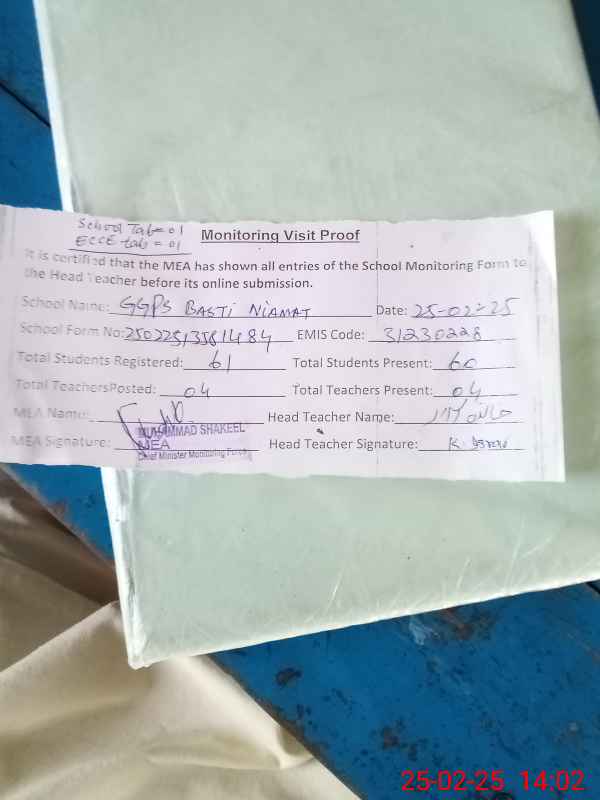 School Tab=01
ECCE tab = 01
Monitoring Visit Proof
It is certified that the MEA has shown all entries of the School Monitoring Form to
the Head Teacher before its online submission.
School Name: GGPS BASTI NIAMAT Date: 25-02-25
School Form No: EMIS Code: 31230228
Total Students Registered: 61 Total Students Present: 60
Total TeachersPosted: 04 Total Teachers Present: 04
MEA Name: Head Teacher Name:
MUHAMMAD SHAKEEL
MEA Signature: MEA Head Teacher Signature:
Chief Minister Monitoring Force
25-02-25 14:02